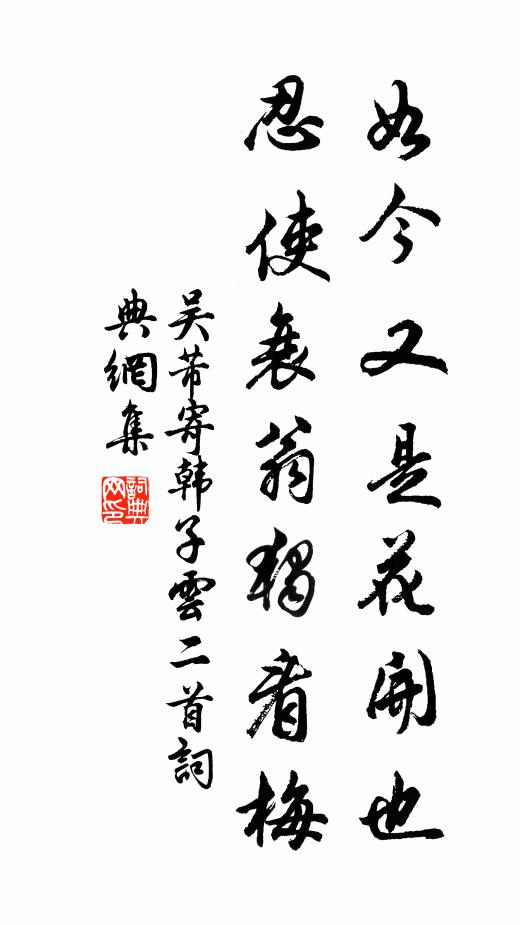 如今又是花開也
忍使衰翁獨看梅
吴芾寄韩子雲二首詞
典網集
詞典
网印